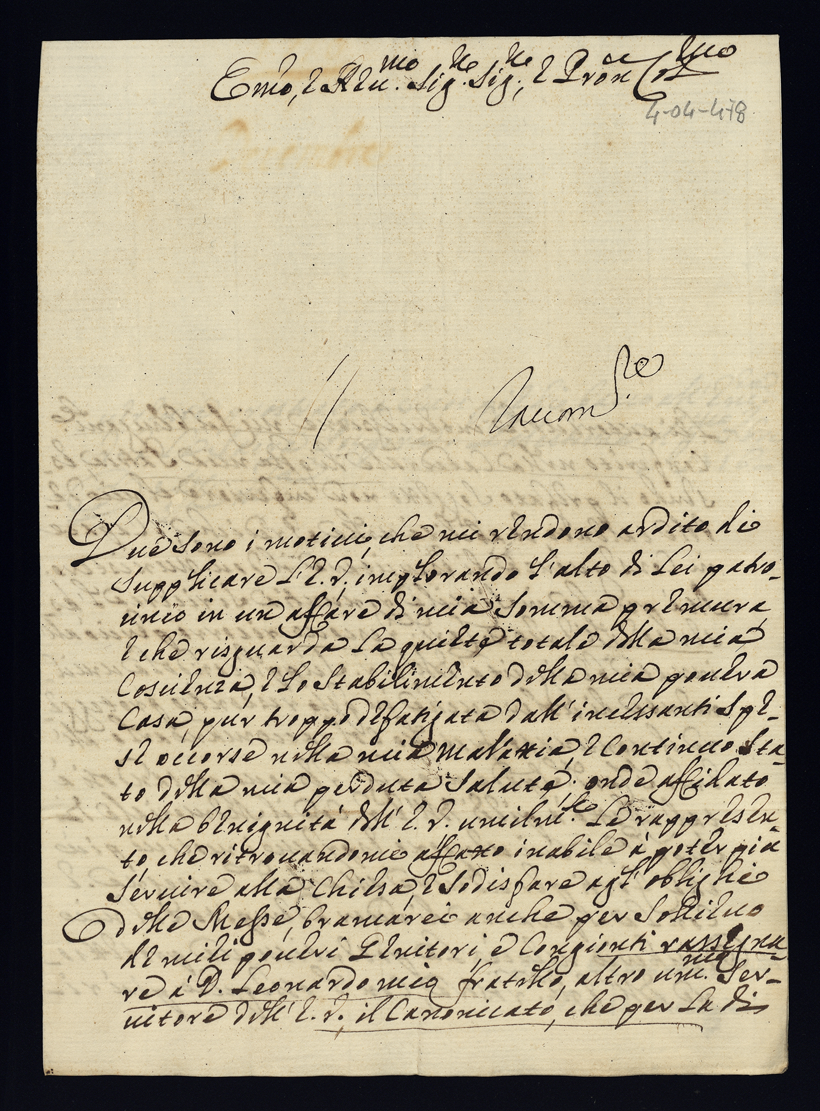 Emo, e Reu.mo Sig.re Sig.re, e Pron Col.mo
4-04-478
Decembre
Due sono i motiui, che mi rendono ardito di
supplicare l'E. V. implorando l'alto di Lei patro-
cinio in un affare di mia somma premura,
e che risguarda la quiete totale della mia
Coscienza, e lo stabilimento della mia pouera
Casa, pur troppo defatigata dall'incessanti spe-
se occorse nella mia malattia, e Continuo sta-
to della mia perduta salute; onde affidato
nella benignità dell'E. V. umilm.te Le rappresen-
to, che ritrouandomi affatto inabile à poter più
seruire alla Chiesa, e sodisfare agl'oblighi
delle Messe, bramarei anche per solleuo
de miei poueri Genitori, e Congionti rassegna-
re à D. Leonardo mio fratello, altro um.mo Ser-
uitore dell'E. V., il Canonicato, che per la di